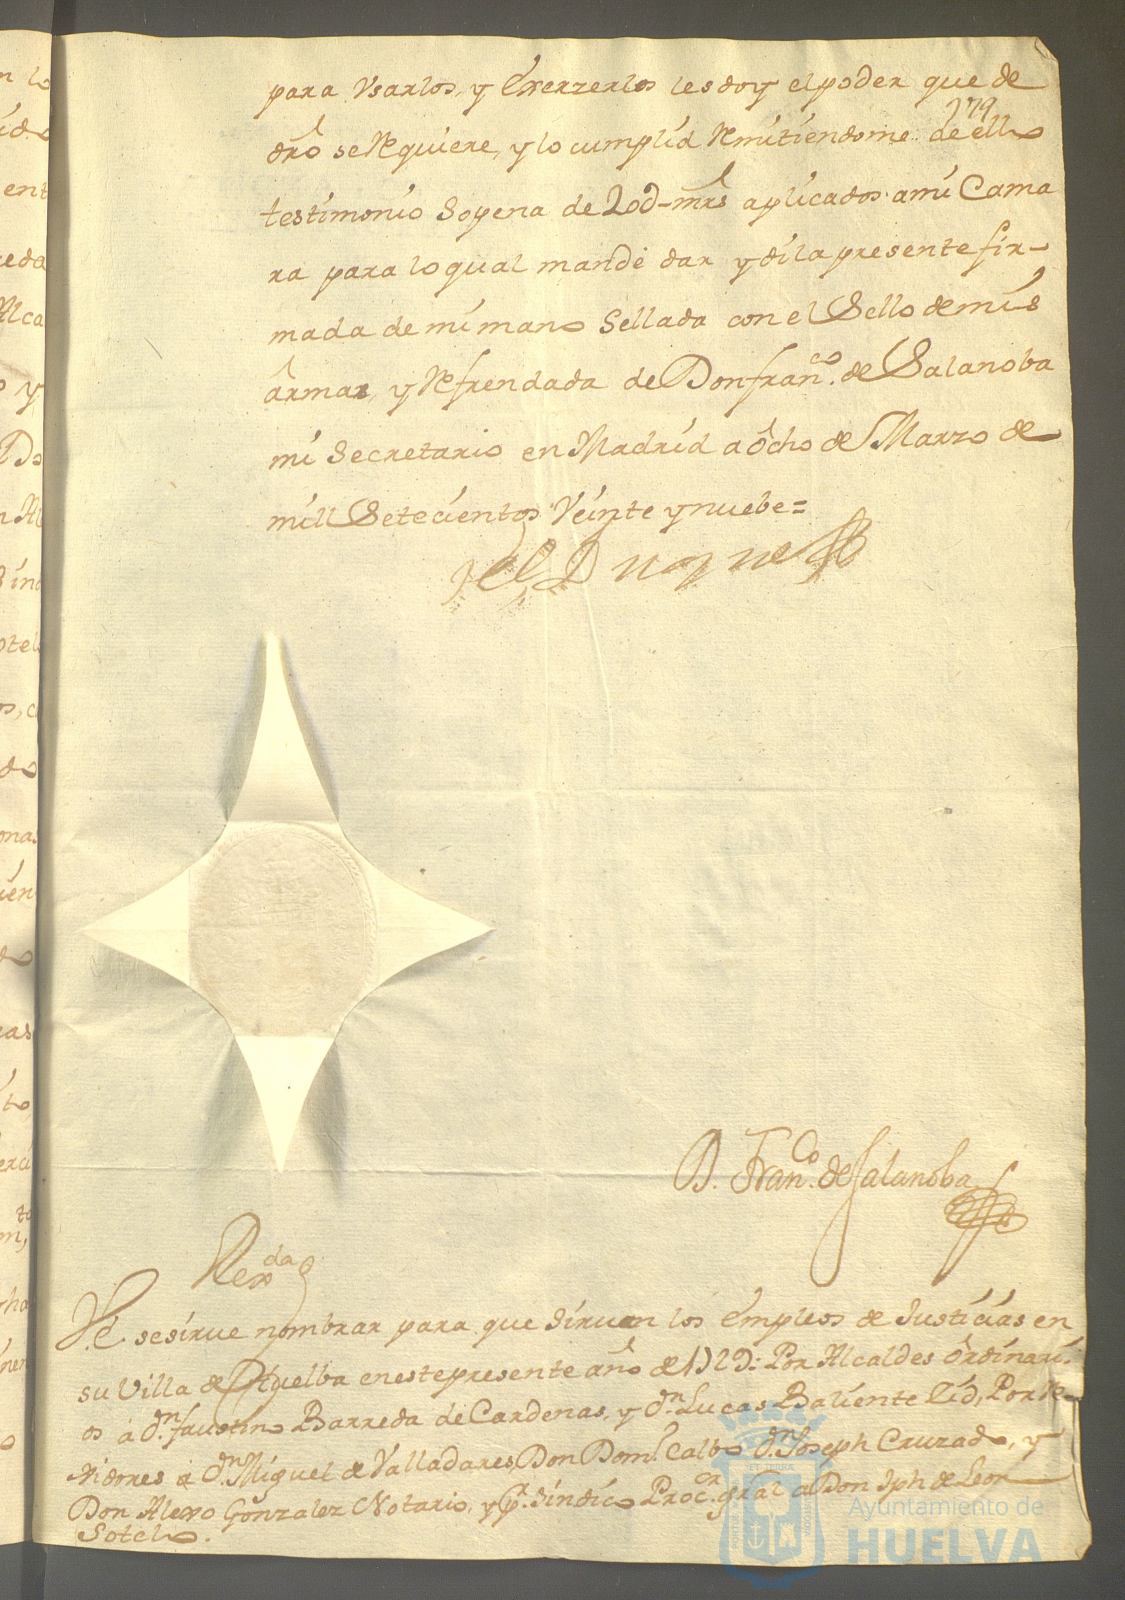 para Vsarlos, y Exerzerlos les doy el poder que de
179
dr̃o se Requiere, y lo cumplid Remitiendome de ello
testimonio so pena de 20d-mrs̃ aplicados ami Cama
ra para lo qual mande dar y di la presente fir-
mada de mi mano Sellada con el Sello de mis
armas, y Refrendada de Don fran.co de Salanoba
mi Secretario en Madrid a ôcho de Marzo de
mill Setecientos Veinte y nuebe=
el Duque
D. Fran.co de Salanoba
VE se sirue nombrar para que Siruan los Empleos de Justicias en
su Villa de Huelba en este presente año de 1729: Por Alcaldes ordinari.
os a d.n faustino Barreda de Cardenas, y d.n Lucas Baliente Cid, Por Re-
xidores a d.n Miguel de Valladares, Don Dom.o Calbo d.n Joseph Cruzado, y
Don Alexo Gonzalez Notario, y p.r sindico Proc.or gral a Don Jph de Leon
Sotelo.
Ayuntamiento de
HUELVA